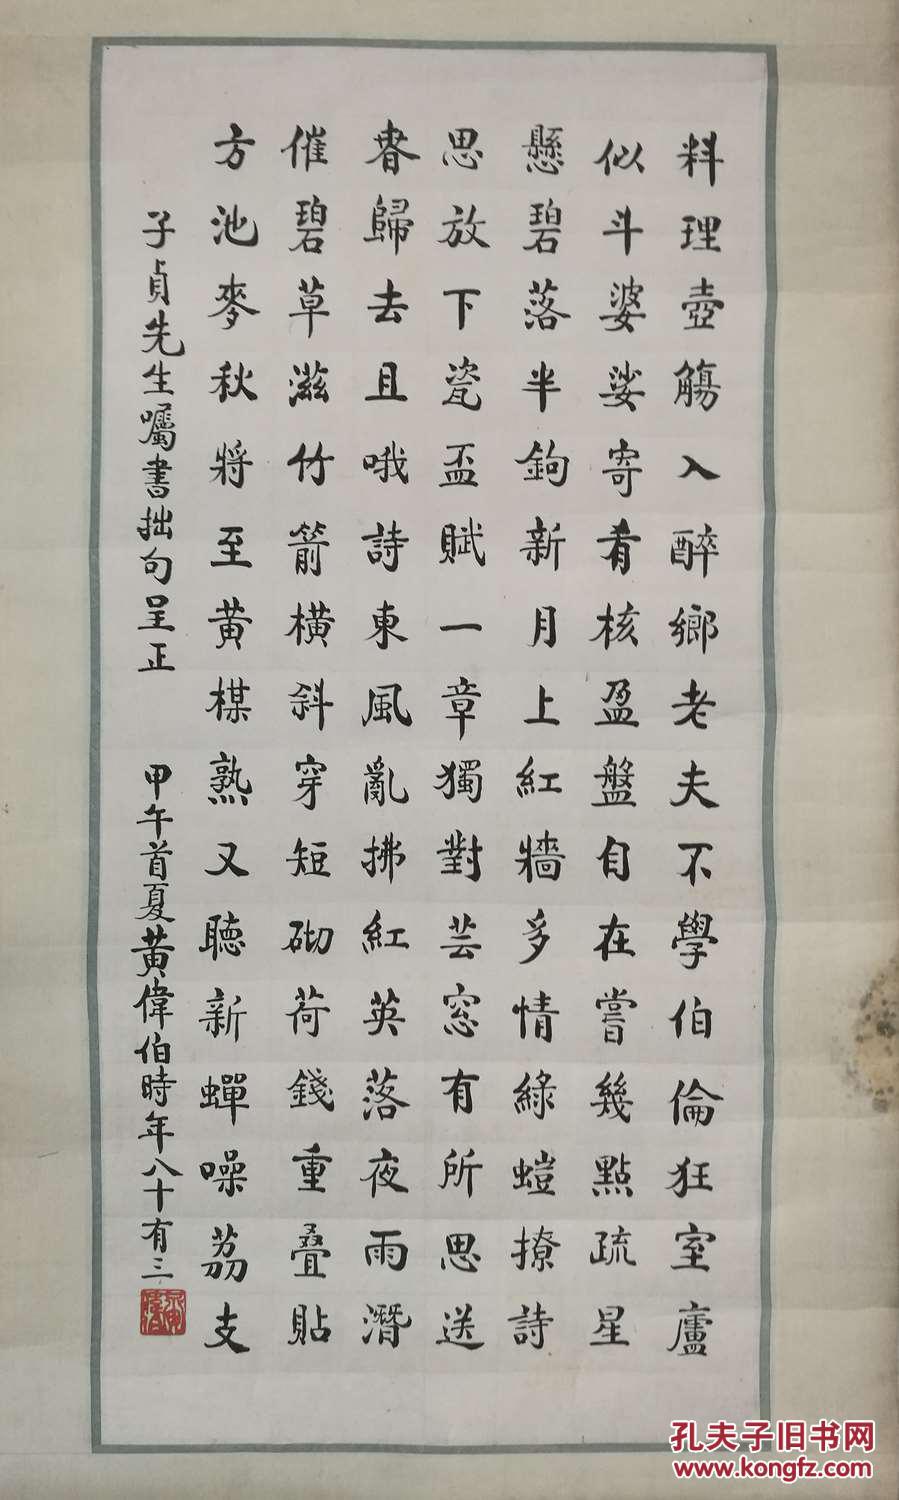 料理壺觴入醉鄉老夫不學伯倫狂室廬
似斗婆娑寄肴核盈盤自在嘗幾點疏星
懸碧落半鉤新月上紅牆多情綠螘撩詩
思放下瓷盃賦一章獨對芸窓有所思送
春歸去且哦詩東風亂拂紅英落夜雨潛
催碧草滋竹箭橫斜穿短砌荷錢重疊貼
方池麥秋將至黃楳熟又聽新蟬噪荔支
子貞先生囑書拙句呈正 甲午首夏黃偉伯時年八十有三
孔夫子旧书网
www.kongfz.com